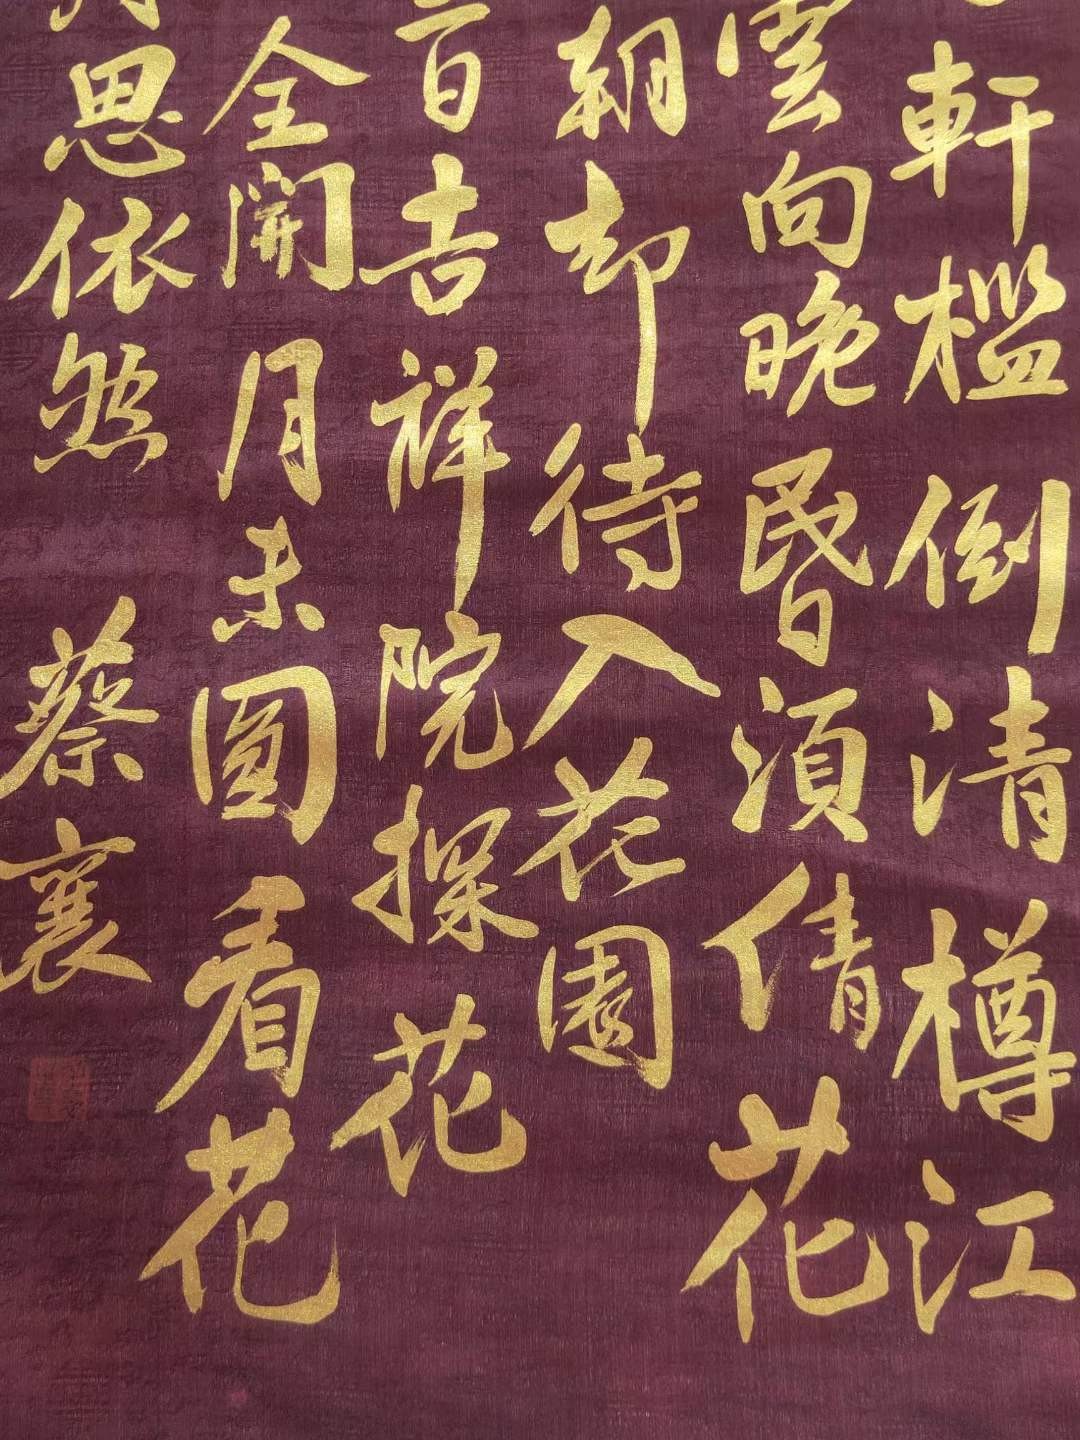 軒檻倒清樽江
雲向晚昏須倩花
朝却待入花園
吉祥院探花
全開月未圓看花
思依然
蔡襄